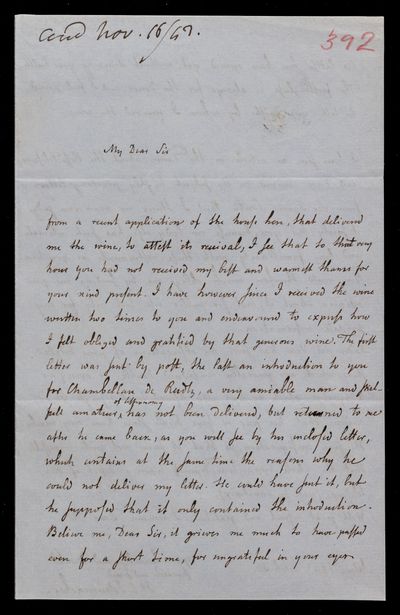 accd Nov. 16/47.
392
My Dear Sir
from a recent application of the house here, that delivered
me the wine, to attest its receival, I see that to that very
hour you had not received my best and warmest thanks for
your kind present. I have however since I received the wine
written two times to you and endeavoured to express how
I felt obliged and gratified by that generous wine. The first
letter was sent by post, the last an introduction to you
for Chambellan de a very amiable man and skil-
full amateur of astronomy, has not been delivered, but returned to me
after he came back, as you will see by his inclosed letter,
which contains at the same time the reasons why he
could not deliver my letter. He could have sent it, but
he supposed that it only contained the introduction.
Believe me, Dear Sir, it grieves me much to have passed
even for a short time, for ungrateful in your eyes